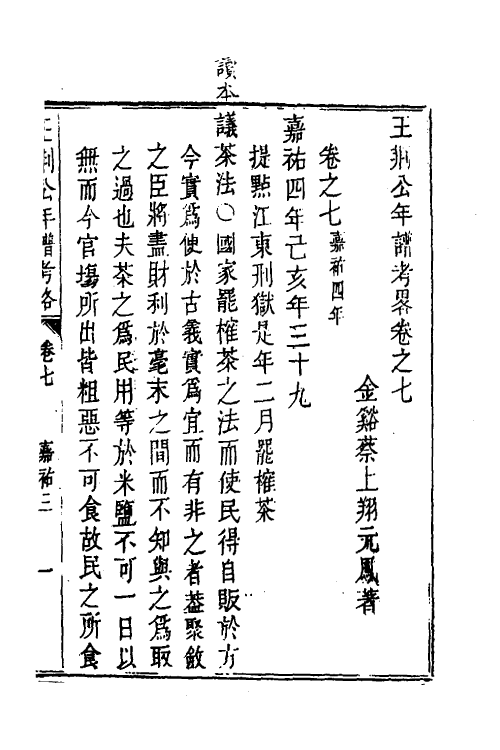 王荊公年譜考畧卷之七
金谿蔡上翔元鳳著
卷之七 嘉祐四年
嘉祐四年己亥年三十九
提點江東刑獄是年二月罷榷茶
讀本
議茶法〇國家罷榷茶之法而使民得自販於方
今實爲便於古義實爲宜而有非之者葢聚斂
之臣將盡財利於毫末之間而不知與之爲取
之過也夫茶之爲民用等於米鹽不可一日以
無而今官塲所出皆粗惡不可食故民之所食
王荊公年譜考略 卷七 嘉祐三 一